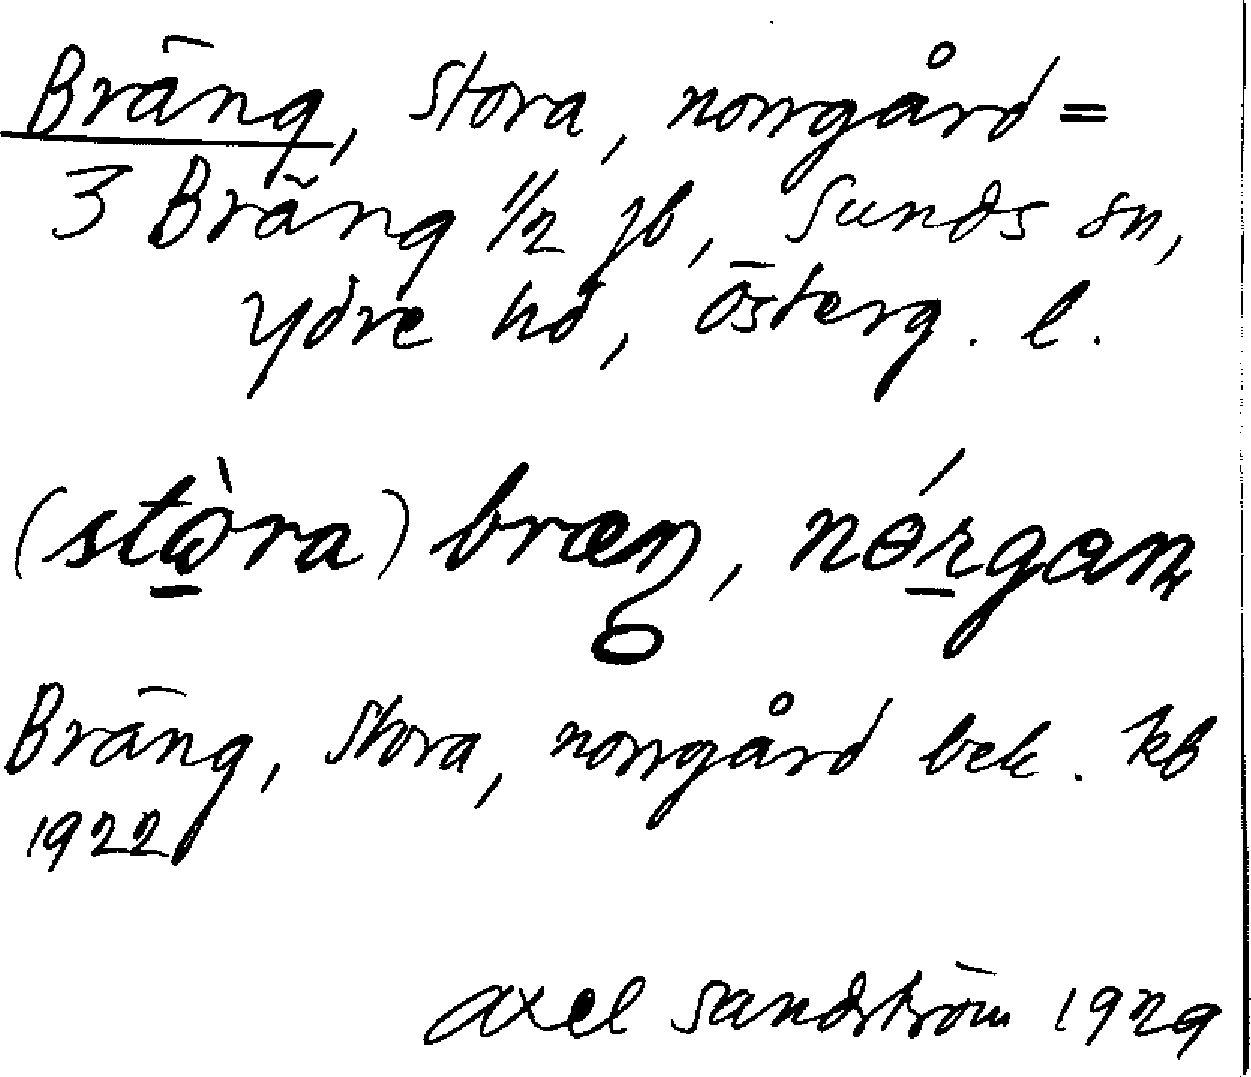 Bräng, Stora, norrgård =
3 Bräng 1/2 jb, Sunds sn,
Ydre hd, Österg. l.
(stὼ̱ra) bræŋ, nɵ́ṟgaɳ
Bräng, Stora, norrgård bek. kb
1922
Axel Sandström 1929